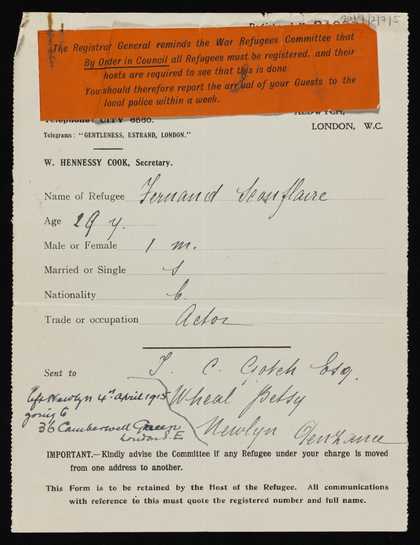 The Registrar General reminds the War Refugees Committee that
By Order in Council all Refugees must be registered, and their
hosts are required to see that this is done
You should therefore report the arrival of your Guests to the
local police within a week.
ALDWYCH,
Telephone: CITY 6660.
LONDON, W.C.
Telegrams: "GENTLENESS, ESTRAND, LONDON."
W. HENNESSY COOK, Secretary.
Name of Refugee Fernand
Age 29 y.
Male or Female 1 m.
Married or Single s
Nationality
Trade or occupation Actor
Sent to T. C. Gotch Esq.
Wheal Betsy
Newlyn Penzance
left Newlyn 4th April 1915
going to
36 Camberwell Green
London. E
IMPORTANT.—Kindly advise the Committee if any Refugee under your charge is moved
from one address to another.
This Form is to be retained by the Host of the Refugee. All communications
with reference to this must quote the registered number and full name.